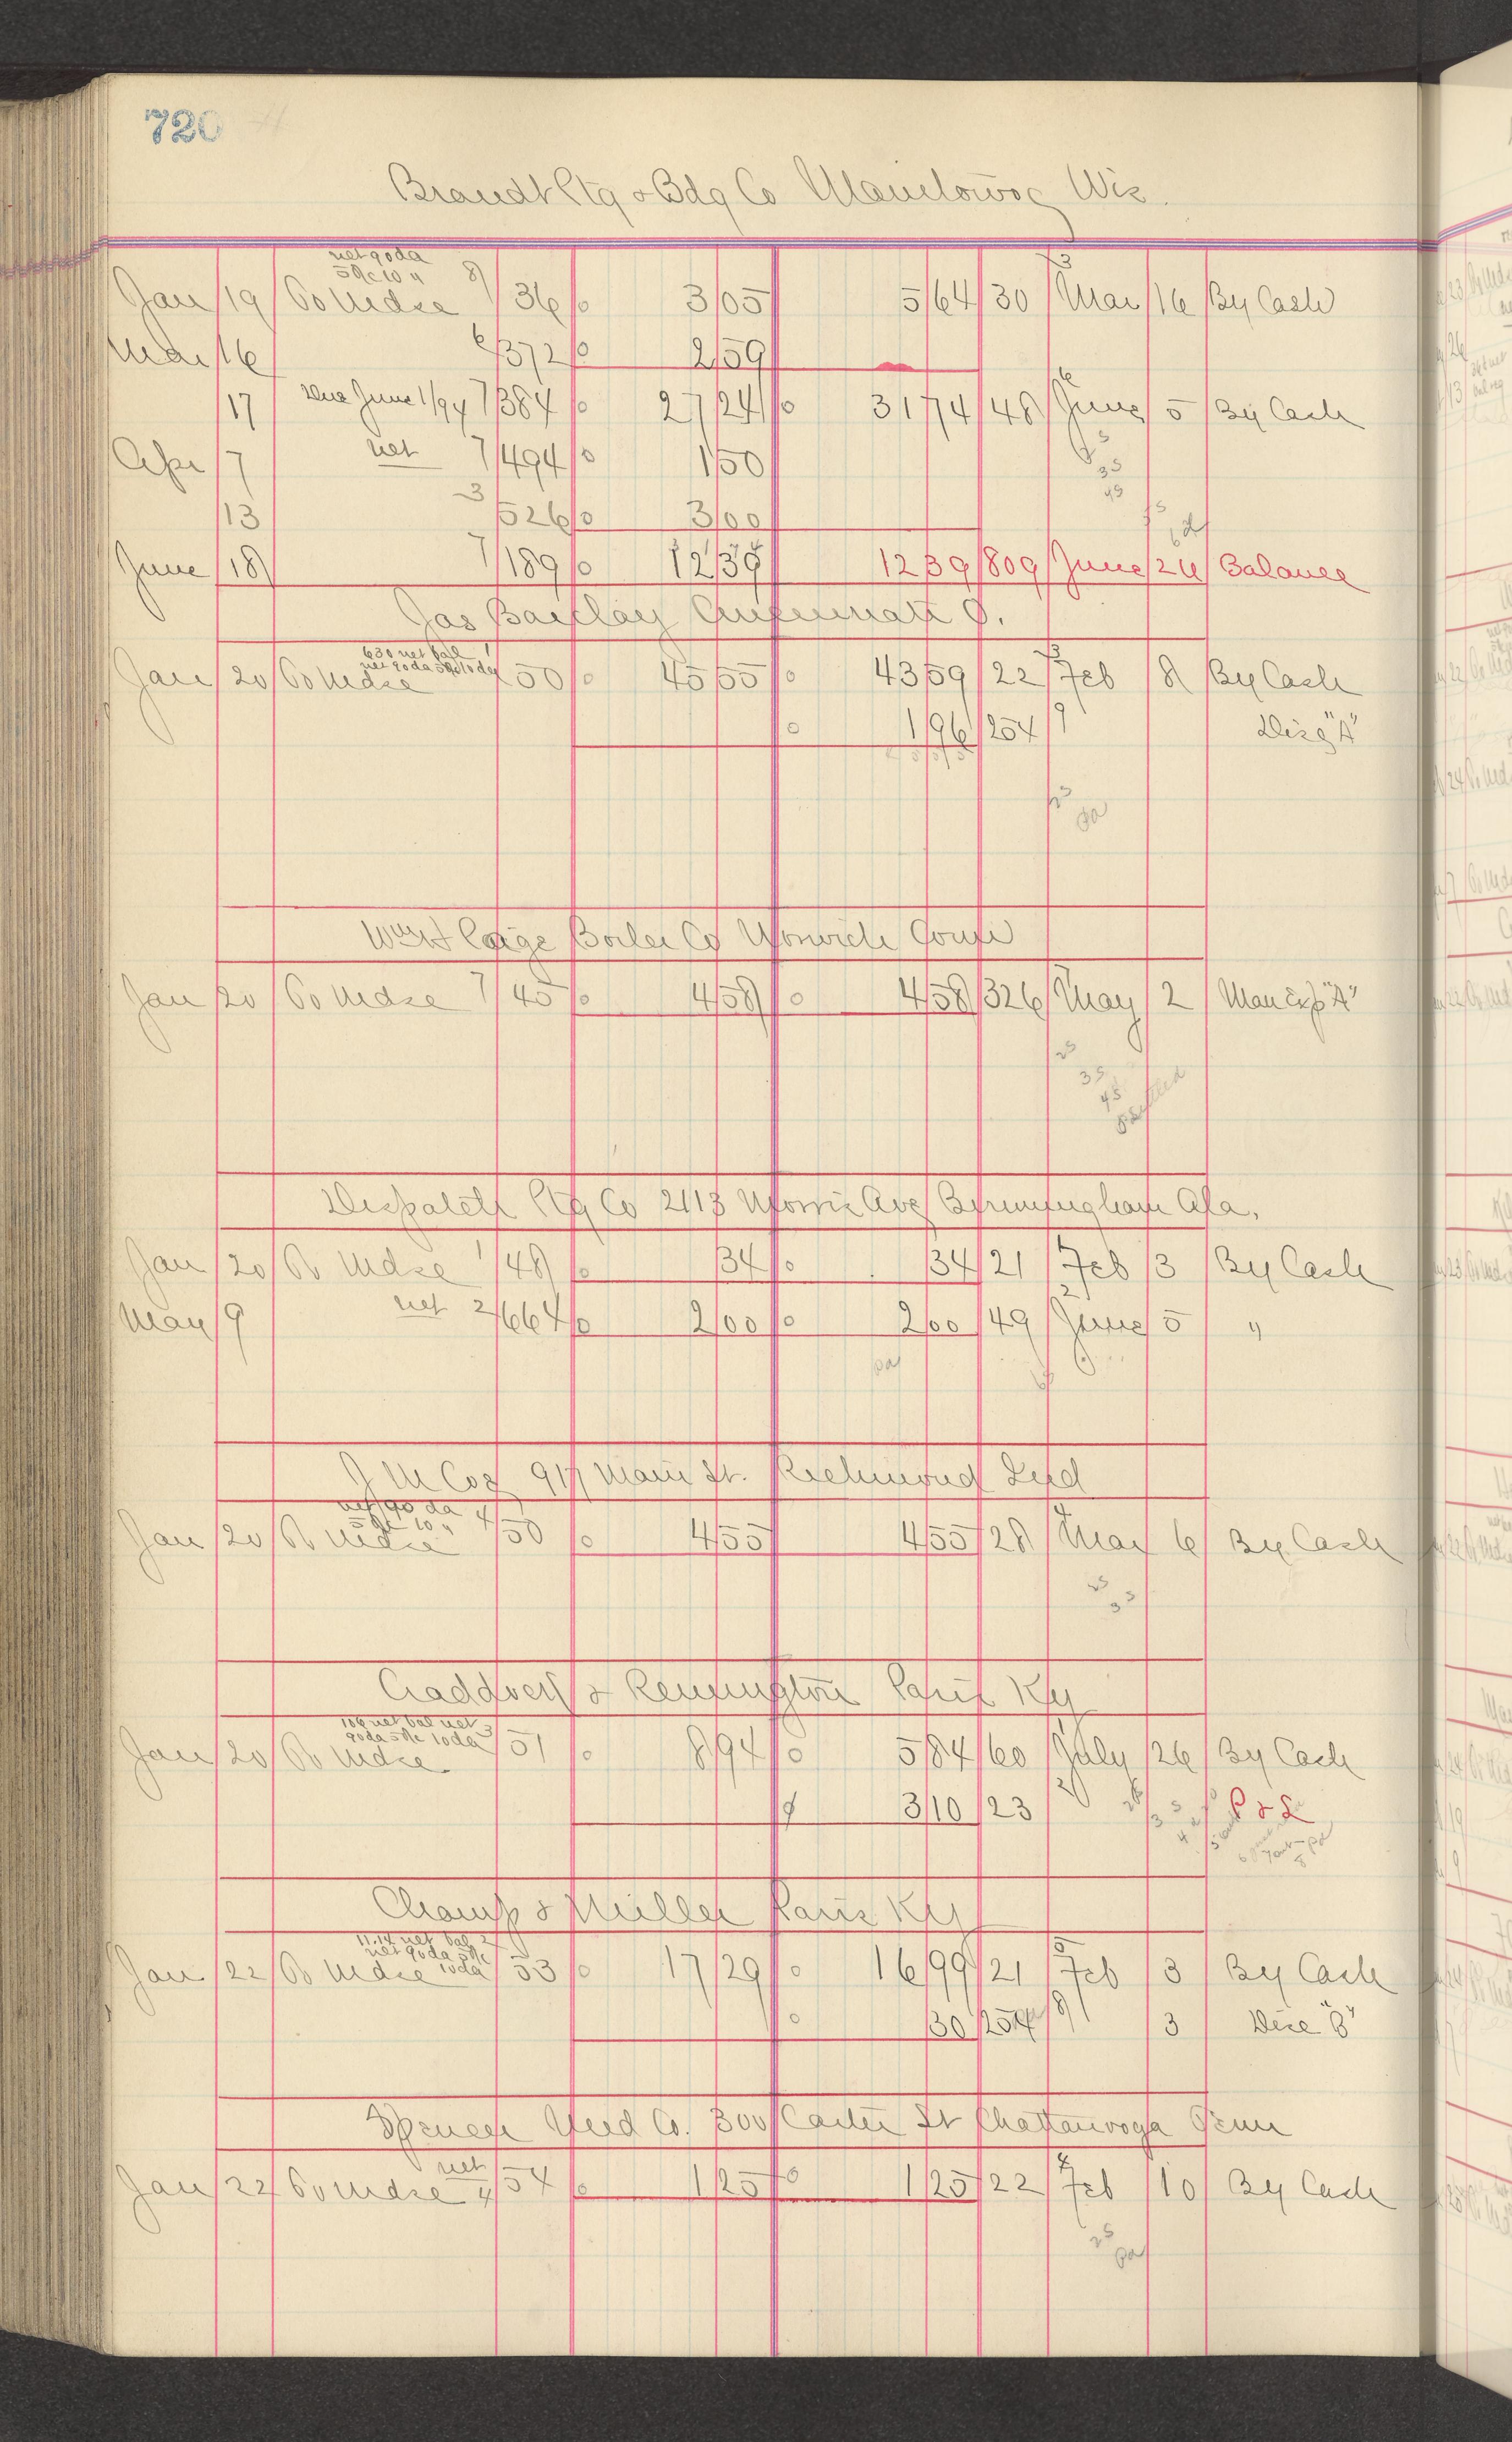 720
Brandt Ptg & Bdg Co Manitowoc Wis.
net 90 da
5% 10 "
Jan 19 To Mdse 8 36 3 05 5 64 30 Mar 16 By Cash
Mar 16 6 372 2 59
17 Due June 1/94 7 384 27 24 31 74 48 June 5 By Cash
Apr 7 net 7 494 1 50
13 3 526 3 00
June 18 7 189 12 39 12 39 809 June 26 Balance
Jas Barclay Cincinnati O.
630 net bal
net 90 da 5% 10 da
Jan 20 To Mdse 1 50 45 55 43 59 22 Feb 8 By Cash
1 96 254 9 Disc "A"
pd
Boiler Co Norwich Conn
Jan 20 To Mdse 7 45 4 58 4 58 326 May 2 Man Exp "A"
25
35
45
settled
Dispatch Ptg Co 2113 Morris Ave Birmingham Ala.
Jan 20 To Mdse 1 48 34 34 21 Feb 3 By Cash
May 9 net 2 664 2 00 2 00 49 June 5 "
pd
J M Coe 917 Main St. Richmond Ind
net 90 da
5% 10 "
Jan 20 To Mdse 4 50 4 55 4 55 28 Mar 6 By Cash
25
35
& Remington Paris Ky
106 net bal net
90 da 5% 10 da
Jan 20 To Mdse 3 51 8 94 5 84 60 July 26 By Cash
3 10 23 P & L
Champ & Miller Paris Ky
11.14 net bal
net 90 da 5%
10 da
Jan 22 To Mdse 53 17 29 16 99 21 Feb 3 By Cash
30 254 8 3 Disc "B"
Spencer Med Co. 300 Carter St Chattanooga Tenn
net
Jan 22 To Mdse 4 54 1 25 1 25 22 Feb 10 By Cash
25
pd